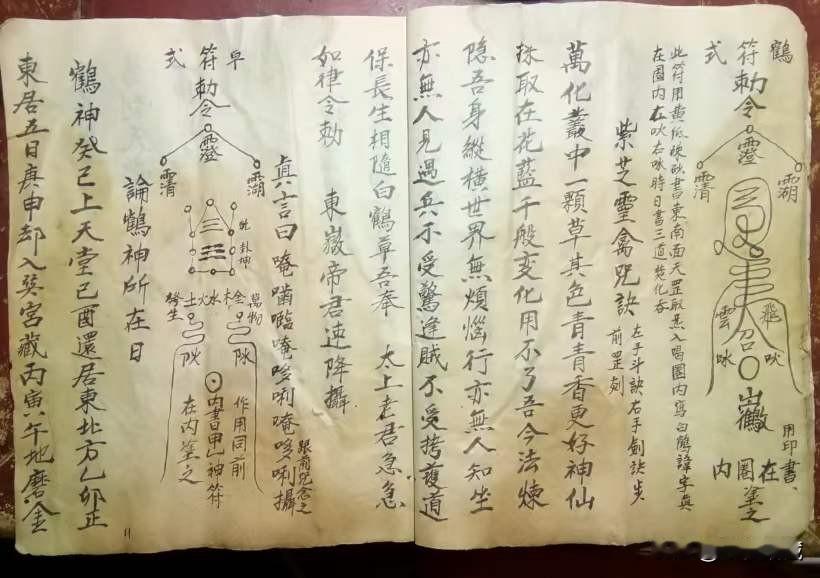 鶴符式
勅令
霐
霶
霿
飛吠
雲咏
召
用印書、
在圈塗之
內
此符用黄紙硃砂書東南面天罡取炁入喝圈內寫白鶴諱字真
在圈內左吹右咏時日書三道焚化吞
紫芝靈禽咒訣
左手斗訣右手劍訣步
前罡刻
萬化叢中一顆草其色青青香更好神仙
採取在花藍千般变化用不了吾今法煉
隐吾身縱橫世界無煩惱行亦無人知坐
亦無人見遇兵不受驚逢賊不受拷護道
保長生相隨白鶴草吾奉　太上老君急急
如律令勅　東嶽帝君速降攝
真言曰唵嚙囕唵哆唎唵哆唎攝
跟前咒念之
早符式
勅令
乾卦坤
萬物
土火水木金
發生
作用同前
內書甲乙神符
在內塗之
論鶴神所在日
鶴神癸巳上天堂己酉還居東北方乙卯正
東居五日庚申却入巽宮藏丙寅午地磨金
11